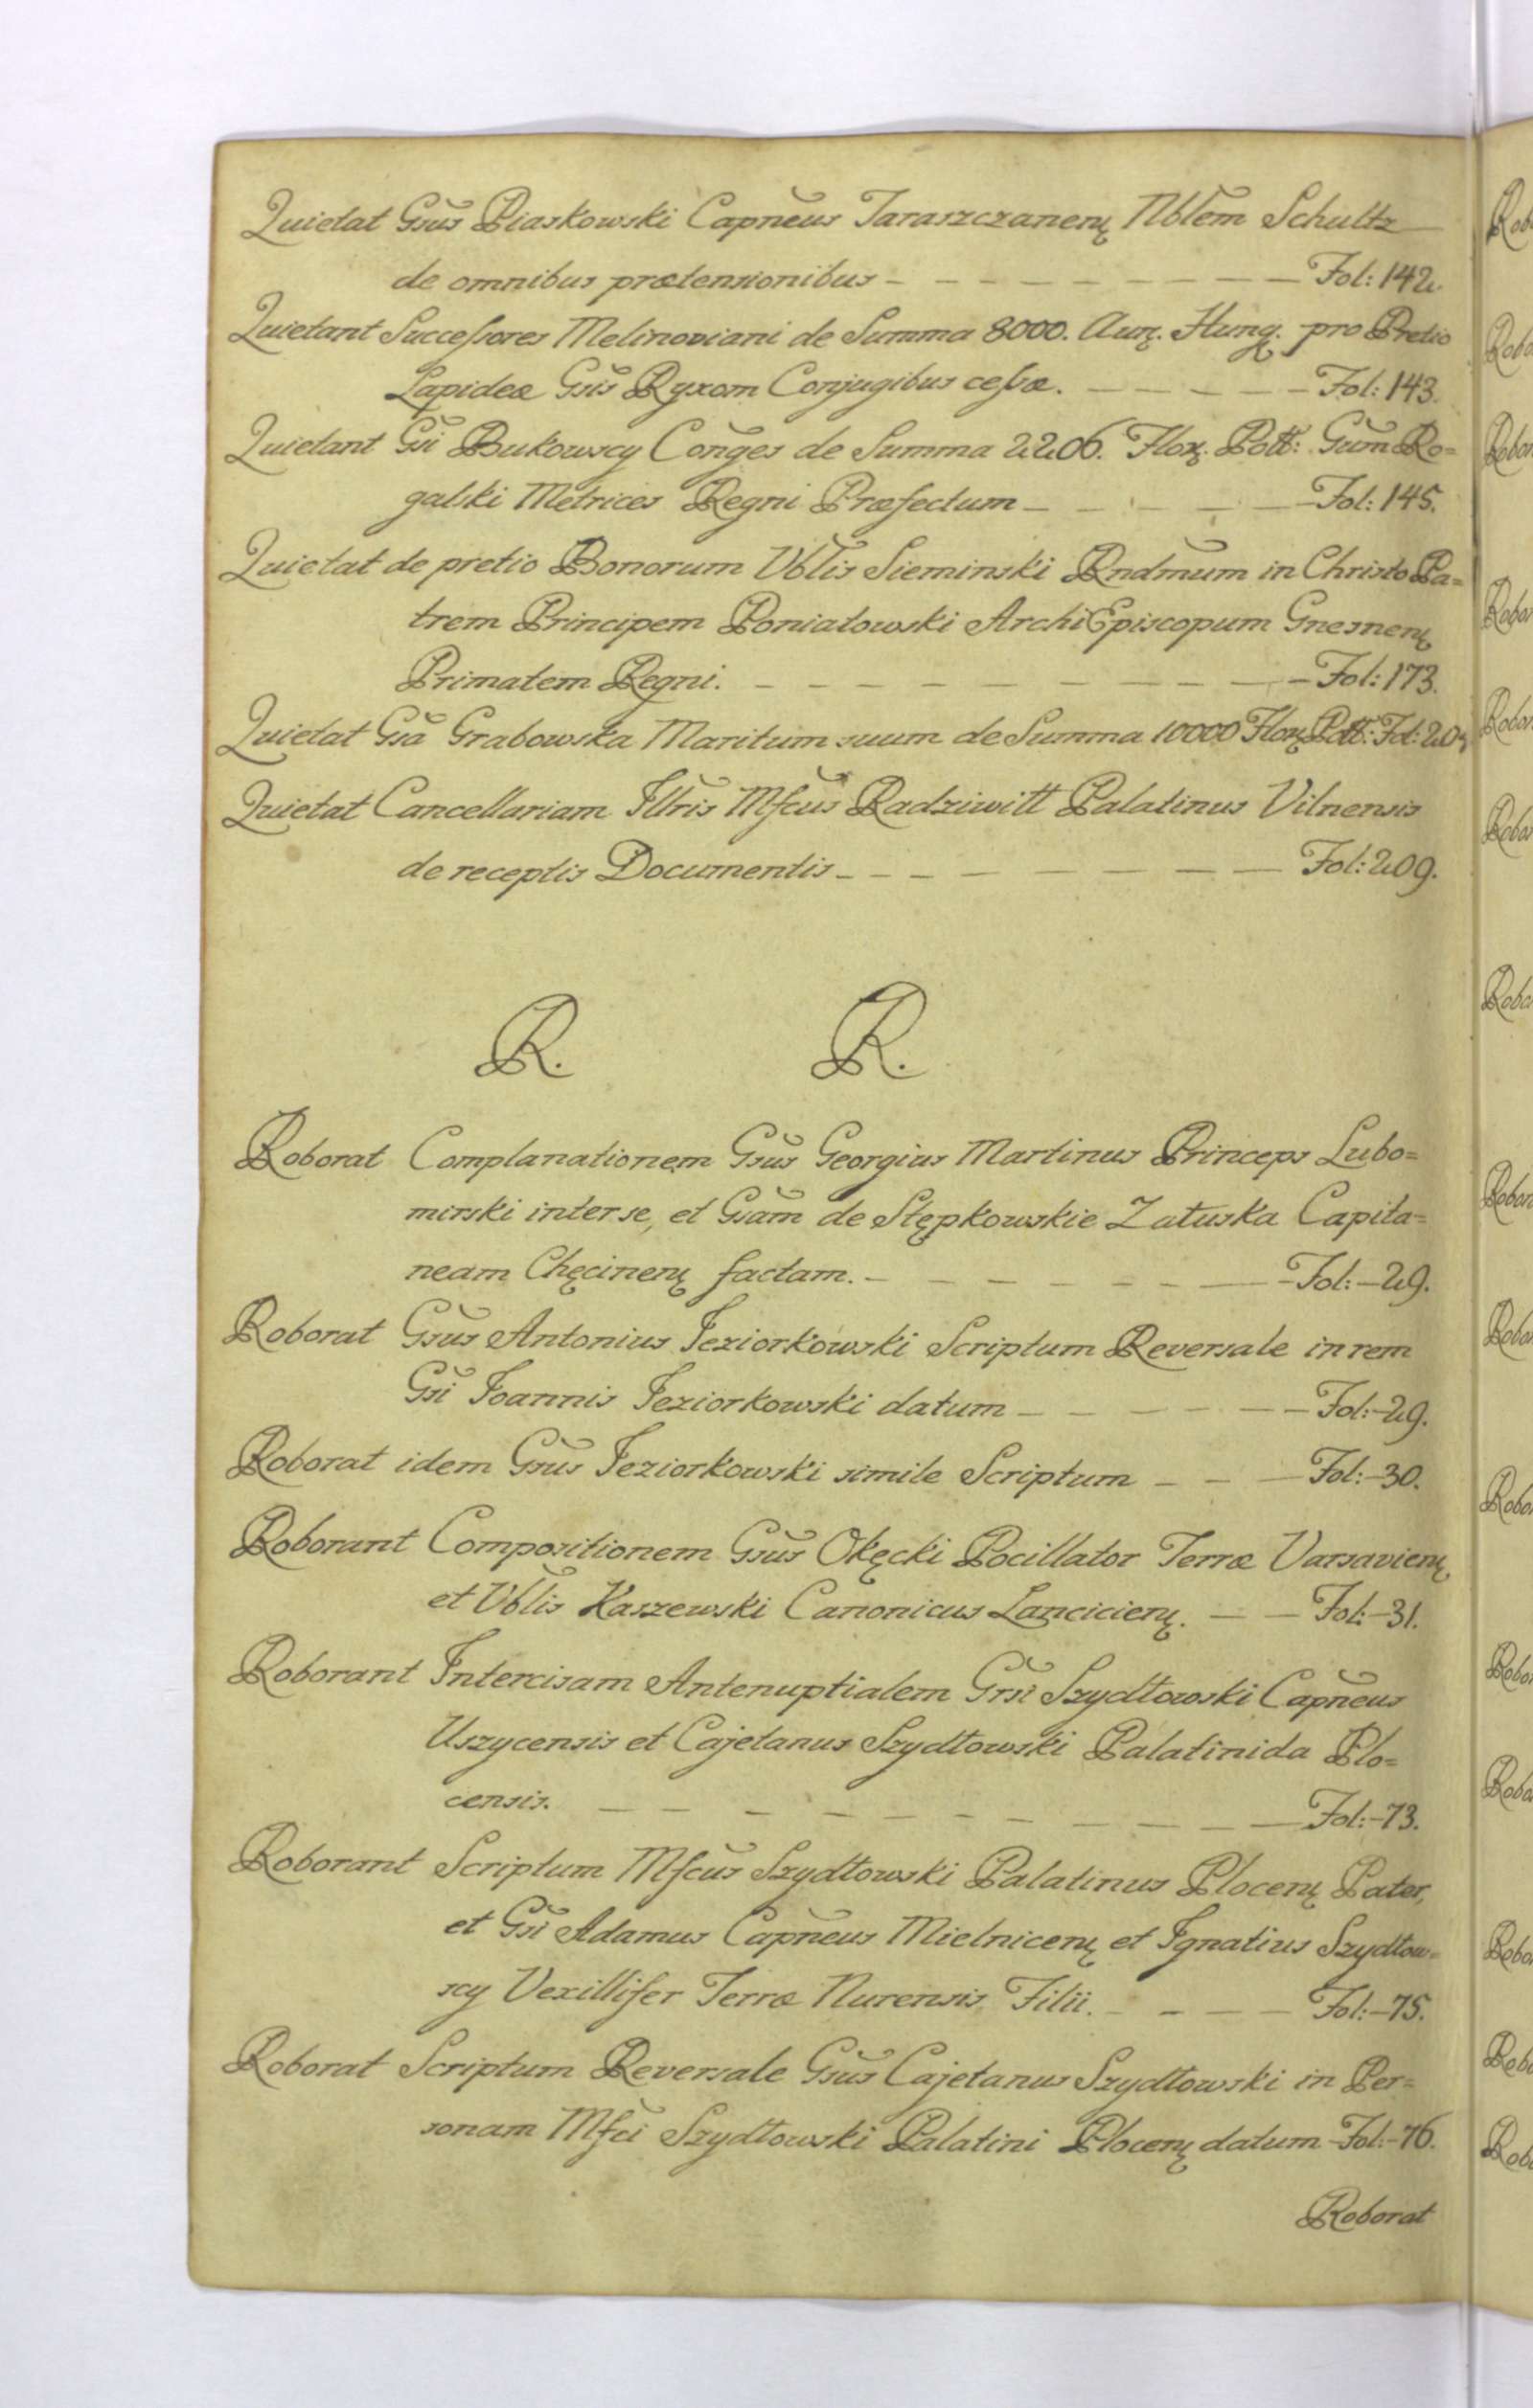 Quietat Gsũs Piaskowski Capñeus Taraszczanenꝫ Nblẽm Schultz
de omnibus prætensionibus — — — — — — — — Fol: 142.
Quietant Succeſsores Melinoviani de Summa 8000. Aurꝫ. Hung. pro Pretio
Lapideæ Gsĩs Ryxom Conjugibus ceſsæ. — — — — — Fol: 143.
Quietant Gsĩ Bukowscy Conĩges de Summa 2206. Florꝫ. Poll: Gsũm Ro=
galski Metrices Regni Præfectum — — — — — Fol: 145.
Quietat de pretio Bonorum Vblĩs Sieminski Rndm̃um in Christo Pa=
trem Principem Poniatowski ArchiEpiscopum Gnesnenꝫ
Primatem Regni. — — — — — — — — — Fol: 173.
Quietat Gsã Grabowska Maritum suum de Summa 10000 Florꝫ Poll: Fol:
Quietat Cancellariam Illrĩs Mfcũs Radziwiłł Palatinus Vilnensis
de receptis Documentis — — — — — — — — Fol: 209.
R. R.
Roborat Complanationem Gsũs Georgius Martinus Princeps Lubo=
mirski inter se, et Gsãm de Stępkowskie Załuska Capita=
neam Chęcinenꝫ factam. — — — — — — — Fol: — 29.
Roborat Gsũs Antonius Jeziorkowski Scriptum Reversale in rem
Gsĩ Joannis Jeziorkowski datum — — — — — — Fol: — 29.
Roborat idem Gsũs Jeziorkowski simile Scriptum — — — Fol: — 30.
Roborant Compositionem Gsũs Okęcki Pocillator Terræ Varsavienꝫ
et Vblĩs Kaszewski Canonicus Lancicienꝫ. — — Fol: — 31.
Roborant Intercisam Antenuptialem Grsĩ Szydłowski Capñeus
Uszycensis et Cajetanus Szydłowski Palatinida Plo=
censis. — — — — — — — — — — Fol: — 73.
Roborant Scriptum Mfcũs Szydłowski Palatinus Plocenꝫ Pater,
et Gsĩ Adamus Capñeus Mielnicenꝫ et Ignatius Szydłow=
scy Vexillifer Terræ Nurensis Filii. — — — — Fol: — 75.
Roborat Scriptum Reversale Gsũs Cajetanus Szydłowski in Per=
sonam Mfci Szydłowski Palatini Plocenꝫ datum — Fol: — 76.
Roborat